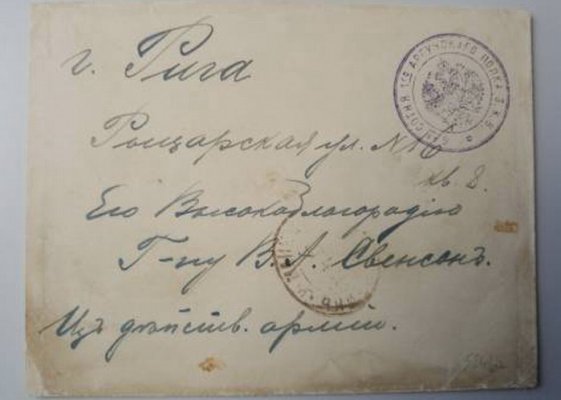 г. Рига
Рыцарская ул. № 10
кв. 8.
Его Высокоблагородію
Г-ну В. А. Свенсонъ.
Изъ дѣйств. арміи.
СОТНИ 1го АРГУНСКАГО ПОЛКА З.К.В.